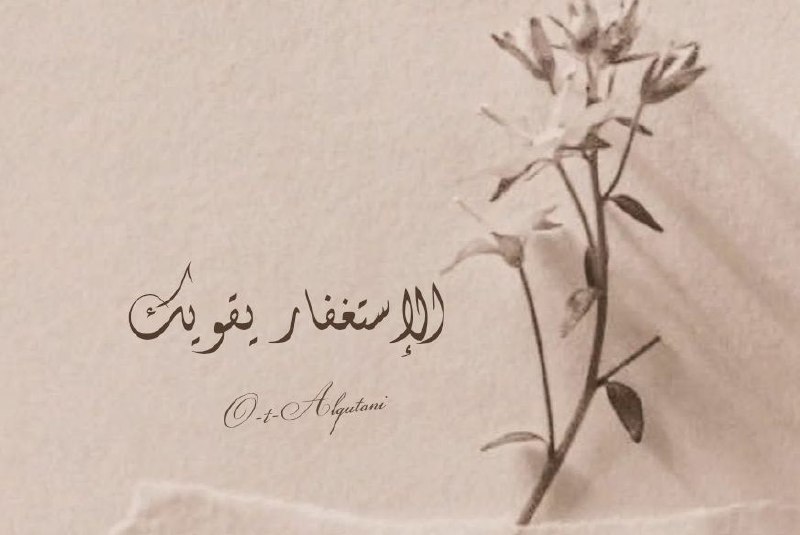 الإستغفار يقويك
O-t-Alqutani